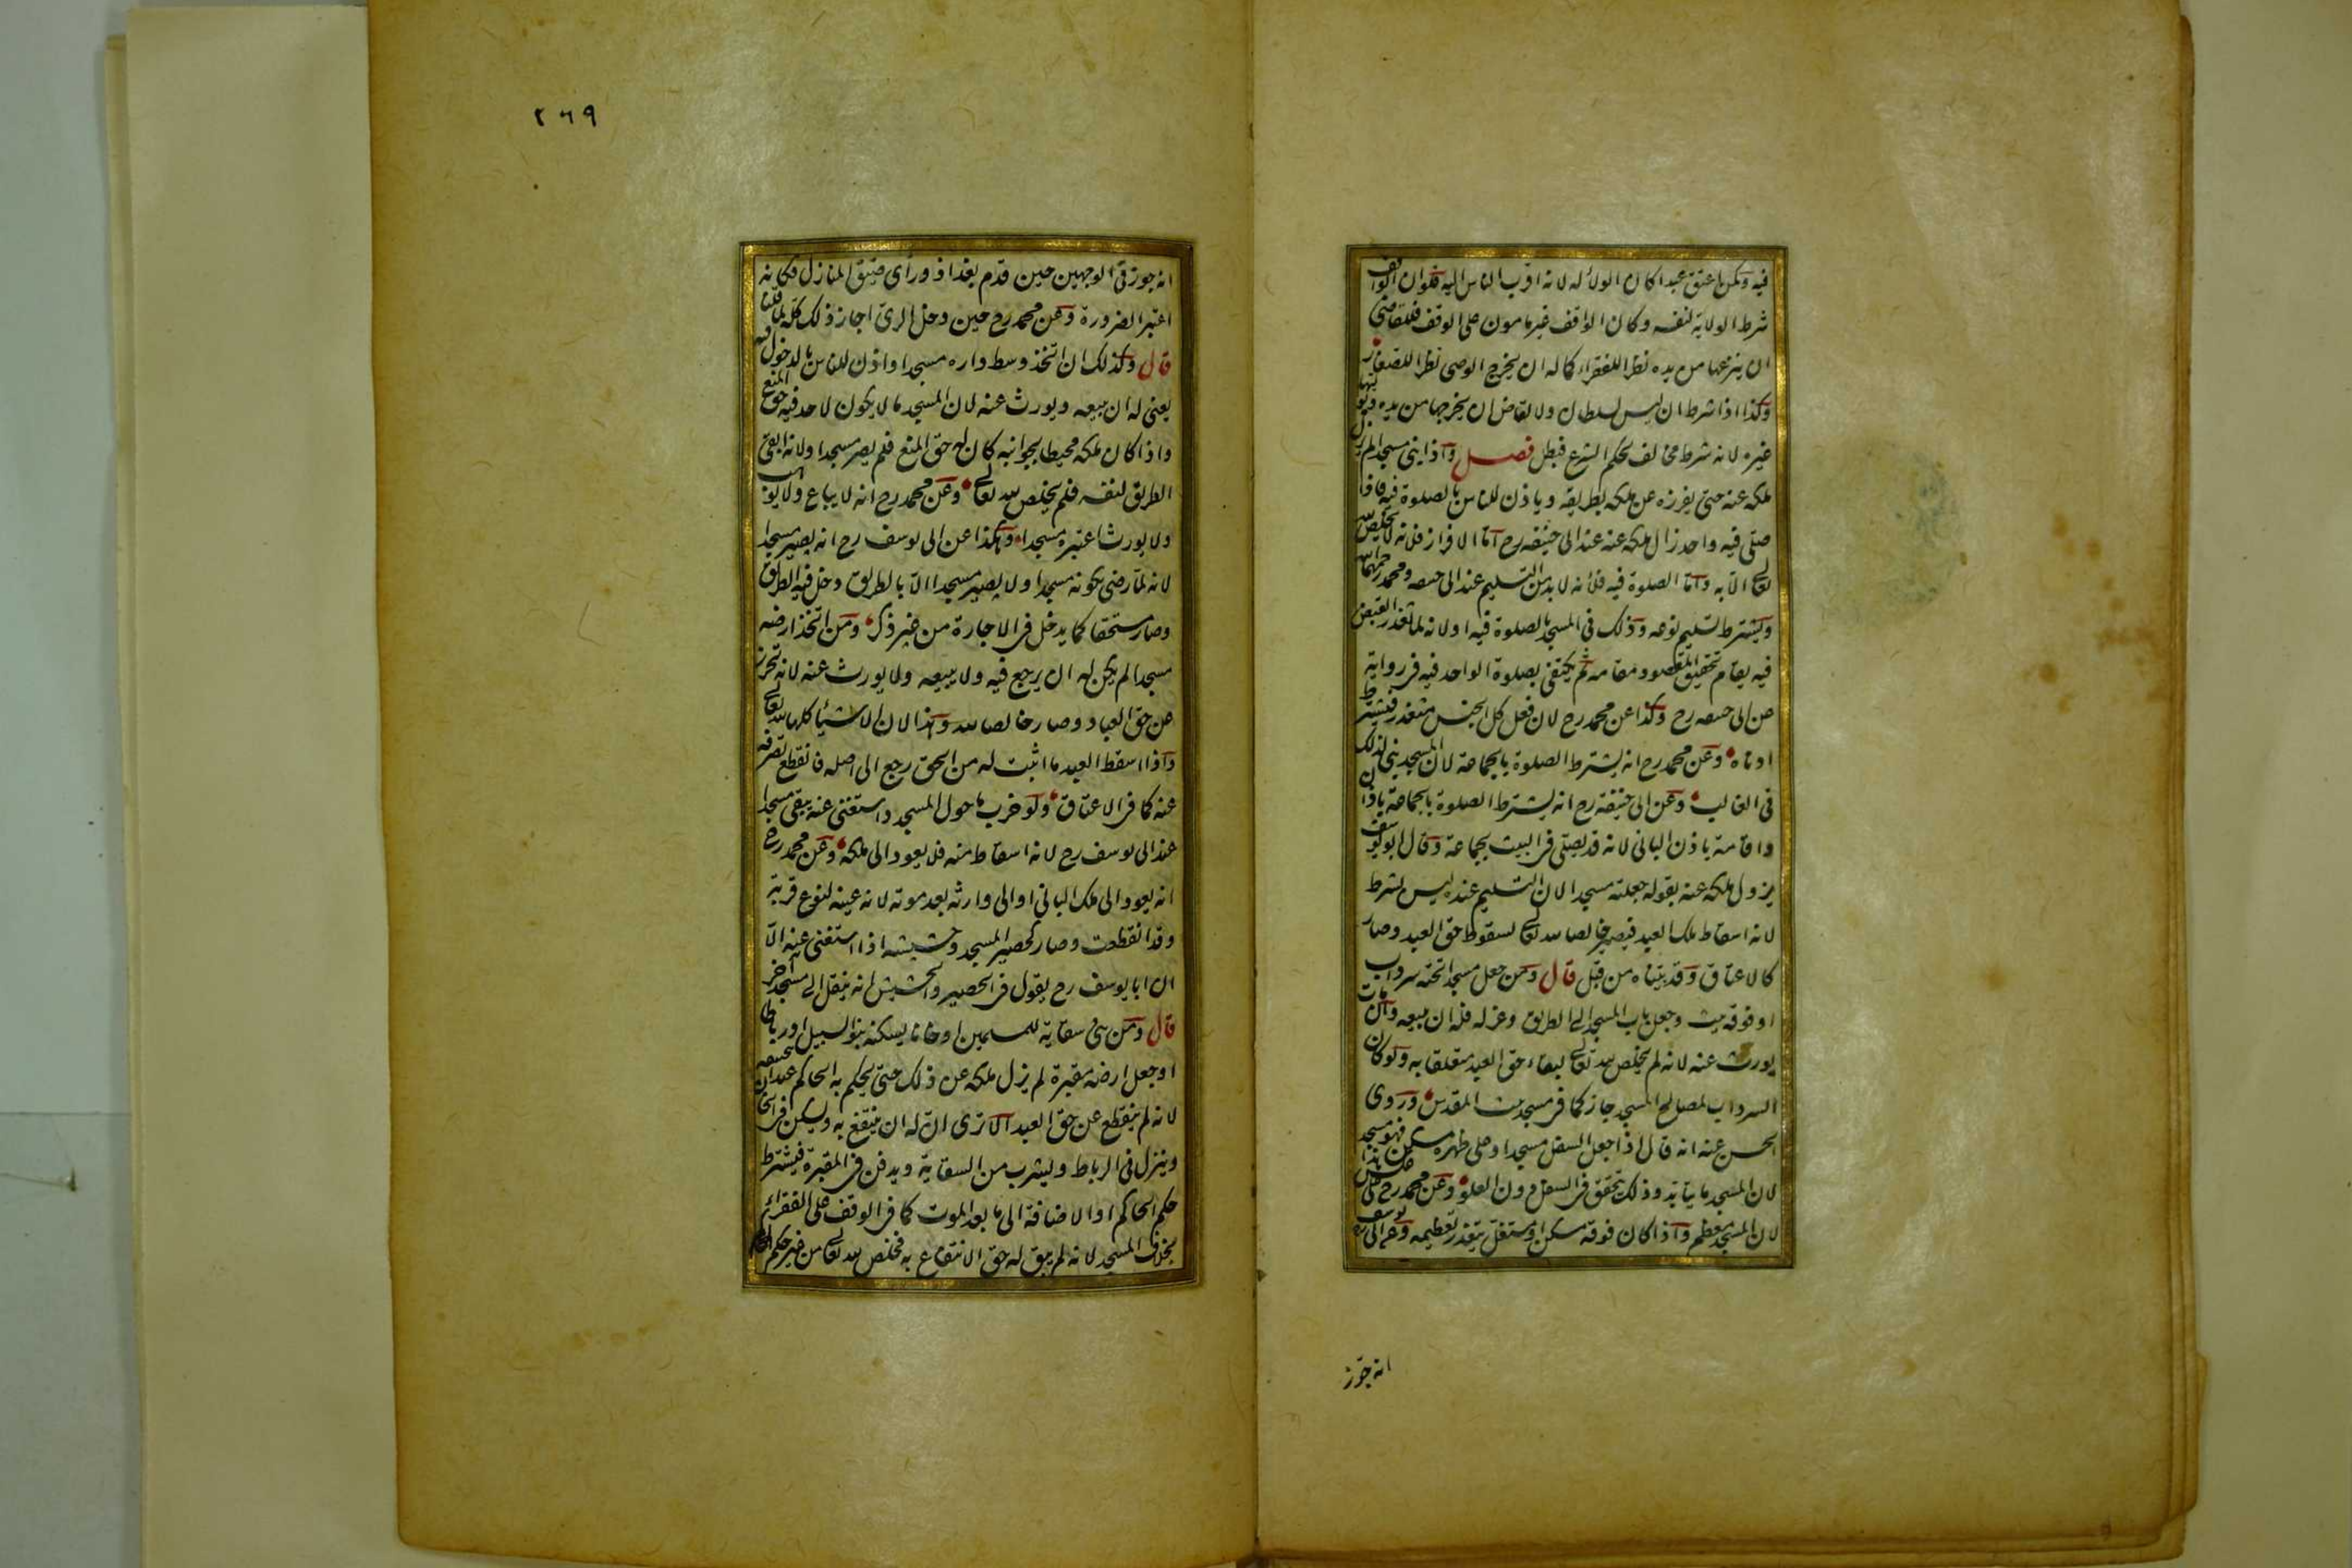 فيه وكمن اعتق عبدا كان الولاء له لانه اقرب الناس اليه فلو ان الواقف
شرط الولاية لنفسه وكان الواقف غير مامون على الوقف فللقاضى
ان ينزعها من يده نظرا للفقراء كما له ان يخرج الوصى نظرا للصغار
وكذا اذا شرط ان ليس لسلطان ولا لقاض ان يخرجها من يده ويوليها
غيره لانه شرط مخالف لحكم الشرع فبطل فصل واذا بنى مسجدا لم يزل
ملكه عنه حتى يفرزه عن ملكه بطريقه وياذن للناس بالصلوة فيه فاذا
صلى فيه واحد زال ملكه عنه عند ابى حنيفه رح اما الافراز فلانه لا يخلص لله
تعالى الا به واما الصلوة فيه فلانه لا بد من التسليم عند ابى حنيفه ومحمد رحمهما الله
ويشترط تسليم نوعه وذلك فى المسجد بالصلوة فيه او لانه لما تعذر القبض
فيه يقام تحقيق المقصود مقامه ثم يكتفى بصلوة الواحد فيه فى رواية
عن ابى حنيفه رح وكذا عن محمد رح لان فعل كل الجنس متعذر فيشترط
ادناه وعن محمد رح انه يشترط الصلوة بالجماعة لان المسجد بنى لذلك
فى الغالب وعن ابى حنيفة رح انه يشترط الصلوة بالجماعة باذان
واقامة باذن البانى لانه قد يصلى فى البيت بجماعة وقال ابو يوسف
يزول ملكه عنه بقوله جعلته مسجدا لان التسليم عنده ليس بشرط
لانه اسقاط ملك العبد فيصير خالصا لله تعالى لسقوط حق العبد وصار
كالاعتاق وقد بيناه من قبل قال ومن جعل مسجدا تحته سرداب
او فوقه بيت وجعل باب المسجد الى الطريق وعزله فله ان يبيعه وان مات
يورث عنه لانه لم يخلص لله تعالى لبقاء حق العبد متعلقا به ولو كان
السرداب لمصالح المسجد جاز كما فى مسجد بيت المقدس وروى
الحسن عنه انه قال اذا جعل السفل مسجدا وعلى ظهره مسكن فهو مسجد
لان المسجد ما يتابد وذلك يتحقق فى السفل دون العلو وعن محمد رح على عكس هذا
لان المسجد معظم واذا كان فوقه مسكن او مستغل يتعذر تعظيمه وعن ابى يوسف رح
انه جوز
٢٦٩
انه جوز فى الوجهين حين قدم بغداذ ورأى ضيق المنازل فكانه
اعتبر الضرورة وعن محمد رح حين دخل الرى اجاز ذلك كله لما قلنا
قال وكذلك ان اتخذ وسط داره مسجدا واذن للناس بالدخول فيه
يعنى له ان يبيعه ويورث عنه لان المسجد ما لا يكون لاحد فيه حق المنع
واذا كان ملكه محيطا بجوانبه كان له حق المنع فلم يصر مسجدا ولانه ابقى
الطريق لنفسه فلم يخلص لله تعالى وعن محمد رح انه لا يباع ولا يوهب
ولا يورث اعتبره مسجدا وهكذا عن ابى يوسف رح انه يصير مسجدا
لانه لما رضى بكونه مسجدا ولا يصير مسجدا الا بالطريق دخل فيه الطريق
وصار مستحقا كما يدخل فى الاجارة من غير ذكر ومن اتخذ ارضه
مسجدا لم يكن له ان يرجع فيه ولا يبيعه ولا يورث عنه لانه تحرز
عن حق العباد وصار خالصا لله وهذا لان الاشياء كلها لله تعالى
واذا اسقط العبد ما اثبت له من الحق رجع الى اصله فانقطع تصرفه
عنه كما فى الاعتاق ولو خرب ما حول المسجد واستغنى عنه يبقى مسجدا
عند ابى يوسف رح لانه اسقاط منه فلا يعود الى ملكه وعن محمد رح
انه يعود الى ملك البانى او الى وارثه بعد موته لانه عينه لنوع قربة
وقد انقطعت وصار كحصير المسجد وحشيشه اذا استغنى عنه الا
ان ابا يوسف رح يقول فى الحصير والحشيش انه ينقل الى مسجد اخر
قال ومن بنى سقاية للمسلمين او خانا يسكنه بنو السبيل او رباطا
او جعل ارضه مقبرة لم يزل ملكه عن ذلك حتى يحكم به الحاكم عند ابى حنيفه
لانه لم ينقطع عن حق العبد الا ترى ان له ان ينتفع به ويسكن فى الخان
وينزل فى الرباط ويشرب من السقاية ويدفن فى المقبرة فيشترط
حكم الحاكم او الاضافة الى ما بعد الموت كما فى الوقف على الفقراء
بخلاف المسجد لانه لم يبق له حق الانتفاع به فخلص لله تعالى من غير حكم الحاكم